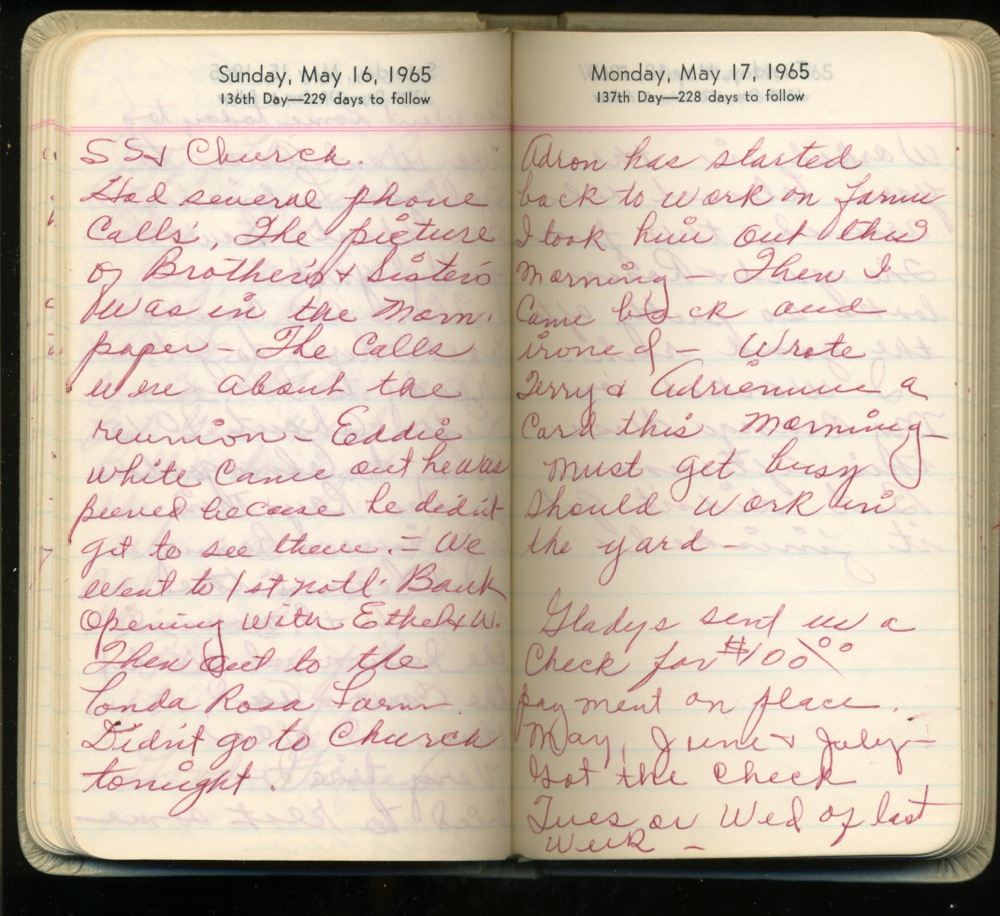 Sunday, May 16, 1965
136th Day—229 days to follow
SS & Church.
Had several phone
Calls, The picture
of Brothers & Sisters
was in the Morn.
paper – The Calls
were about the
reunion – Eddie
white Came out he was
peeved because he didn't
get to see them. – We
went to 1st Natl. Bank
Opening with Ethel & W.
Then out to the
Ponda Rosa Farm
Didn't go to Church
tonight.
Monday, May 17, 1965
137th Day—228 days to follow
Adron has started
back to work on farm
I took him out this
morning – Then I
Came back and
ironed – Wrote
Terry & Adrienne a
Card this Morning –
Must get busy
should work in
the yard –
Gladys sent us a
Check for $100.00
payment on place.
May, June & July –
Got the check
Tues or Wed of last
week –